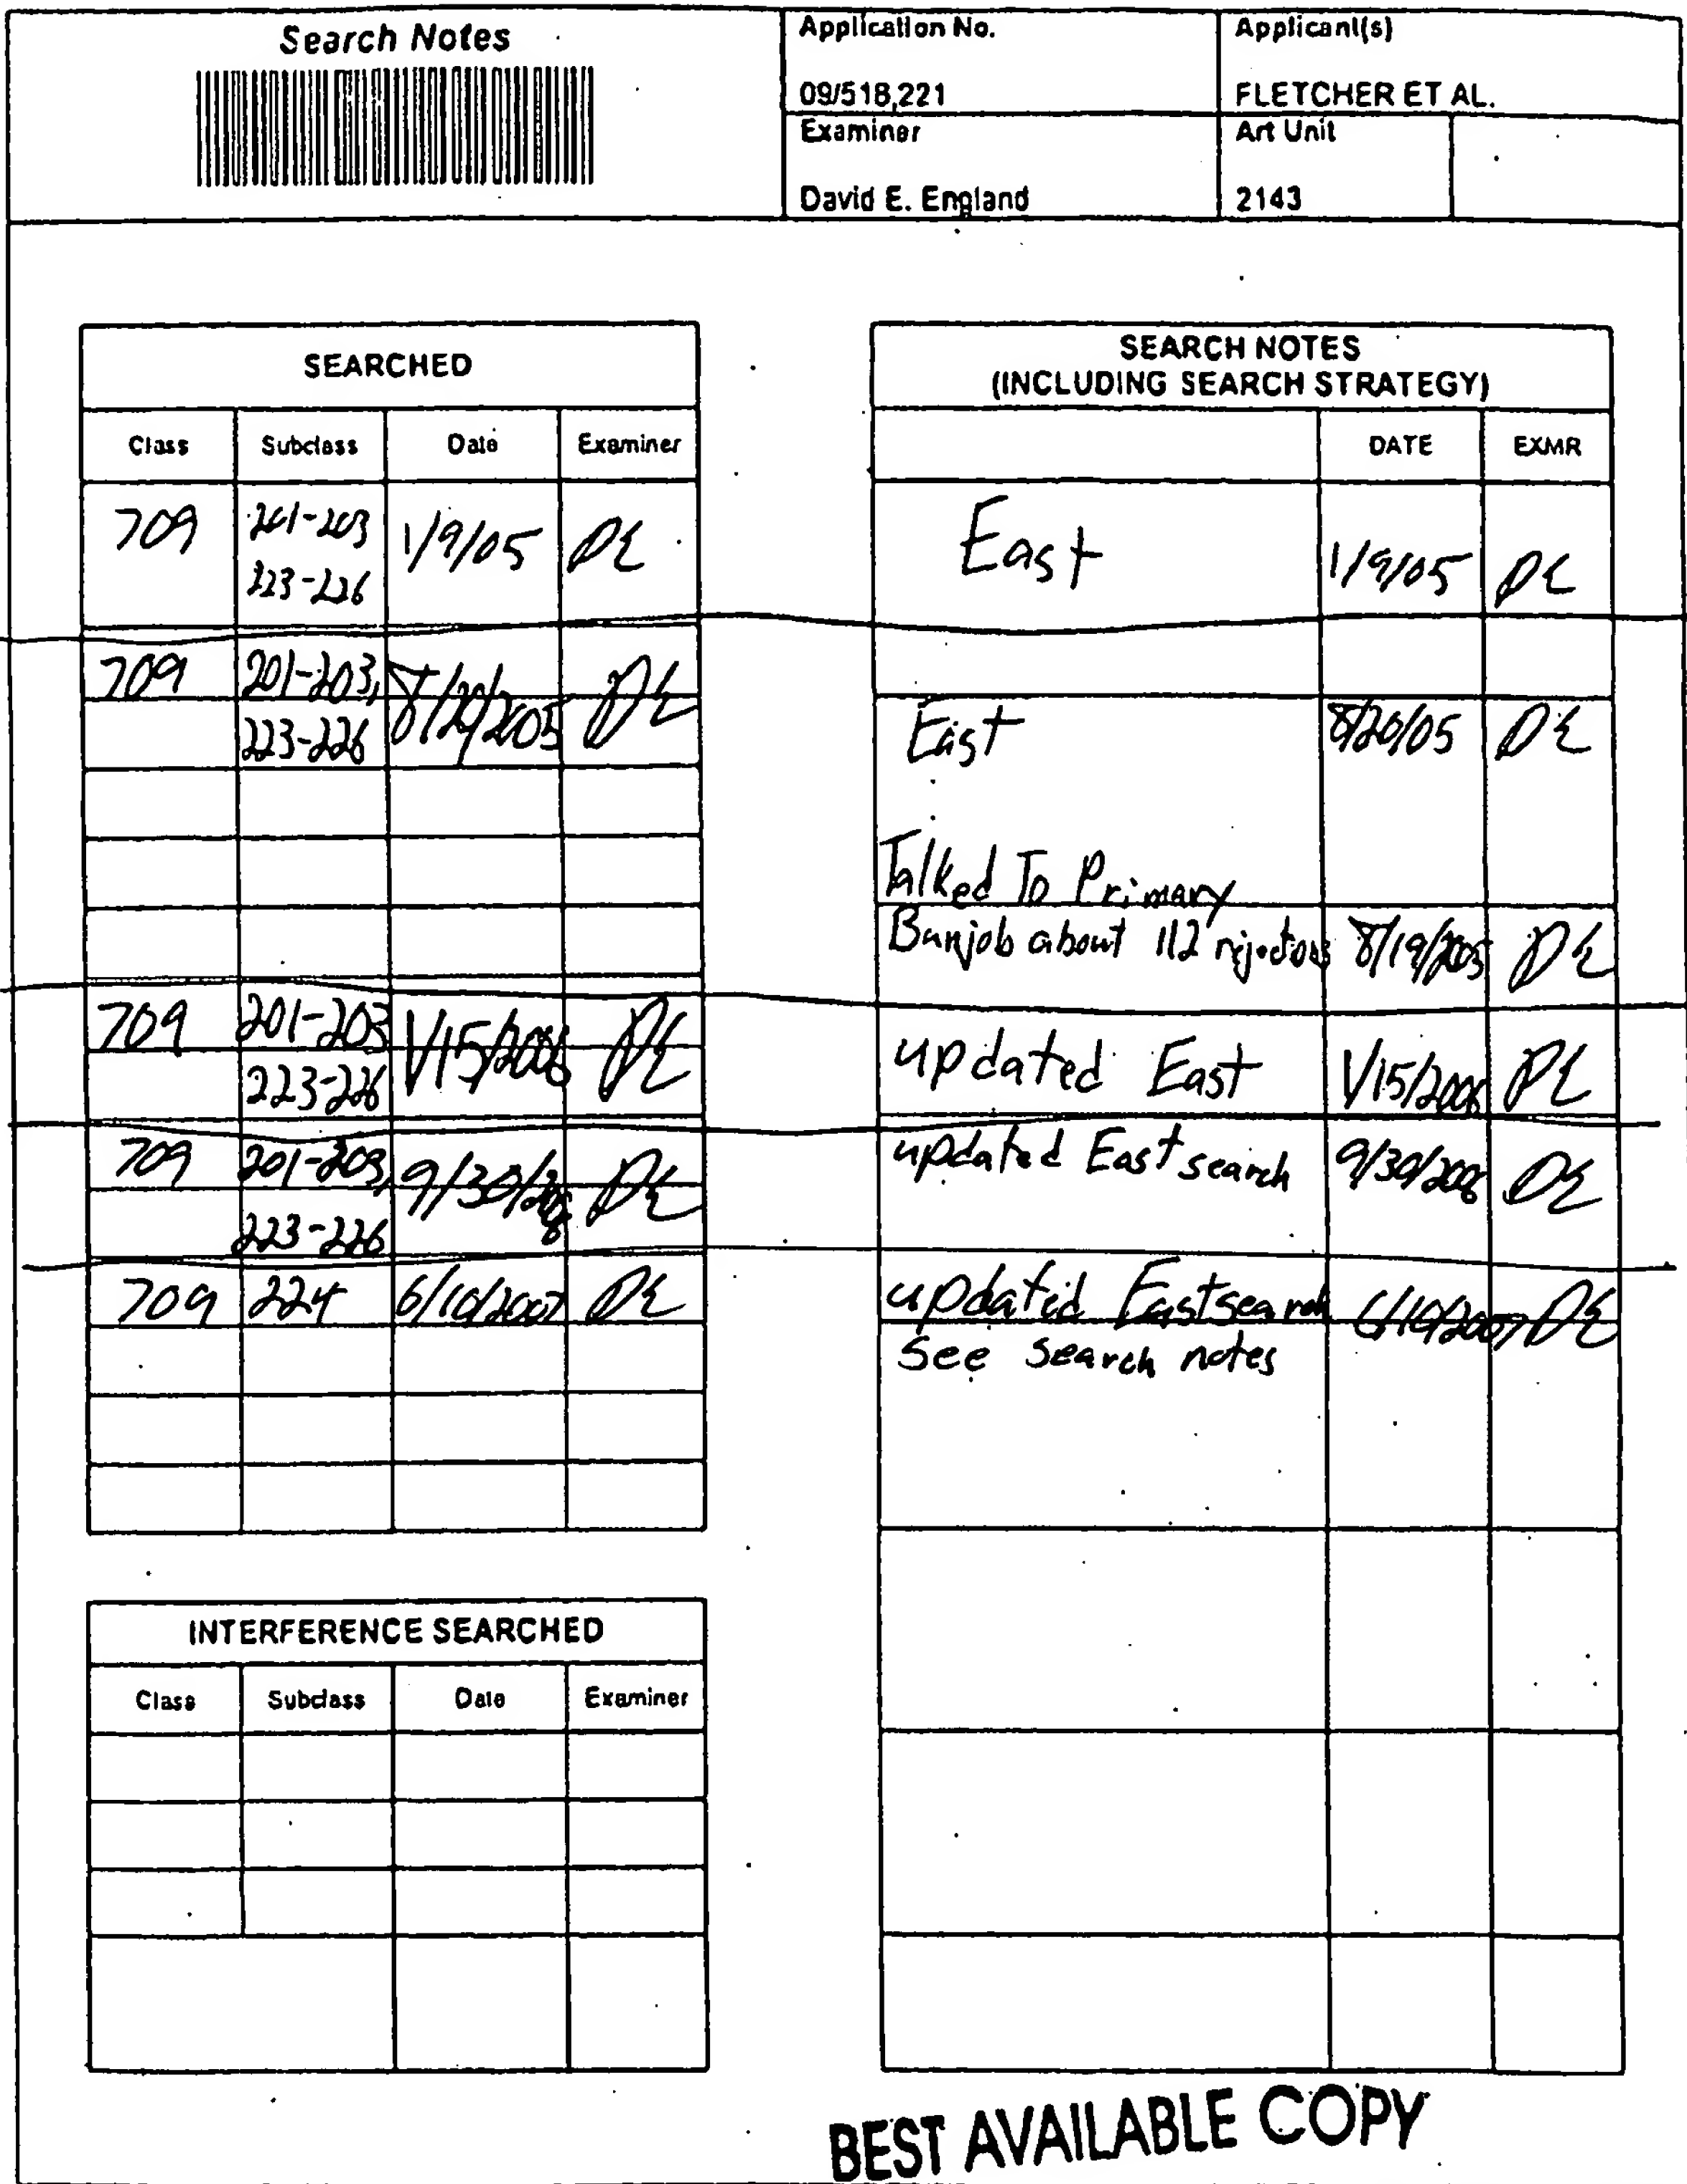 Search Notes
Application No.
Applicant(s)
09/518,221
FLETCHER ET AL.
Examiner
Art Unit
David E. England
2143
SEARCHED
Class Subclass Date Examiner
709 201-203 1/9/05 DE
223-226
709 201-203, 8/20/2005 DE
223-226
709 201-203 1/15/2006 DE
223-226
709 201-203, 9/30/206 DE
223-226
709 224 6/10/2007 DE
INTERFERENCE SEARCHED
Class Subclass Date Examiner
SEARCH NOTES
(INCLUDING SEARCH STRATEGY)
DATE EXMR
East 1/9/05 DE
East 8/20/05 DE
Talked To Primary
Banjob about 112 rejections 8/19/2005 DE
updated East 1/15/2006 DE
updated East search 9/30/2006 DE
updated East search 6/10/2007 DE
See search notes
BEST AVAILABLE COPY